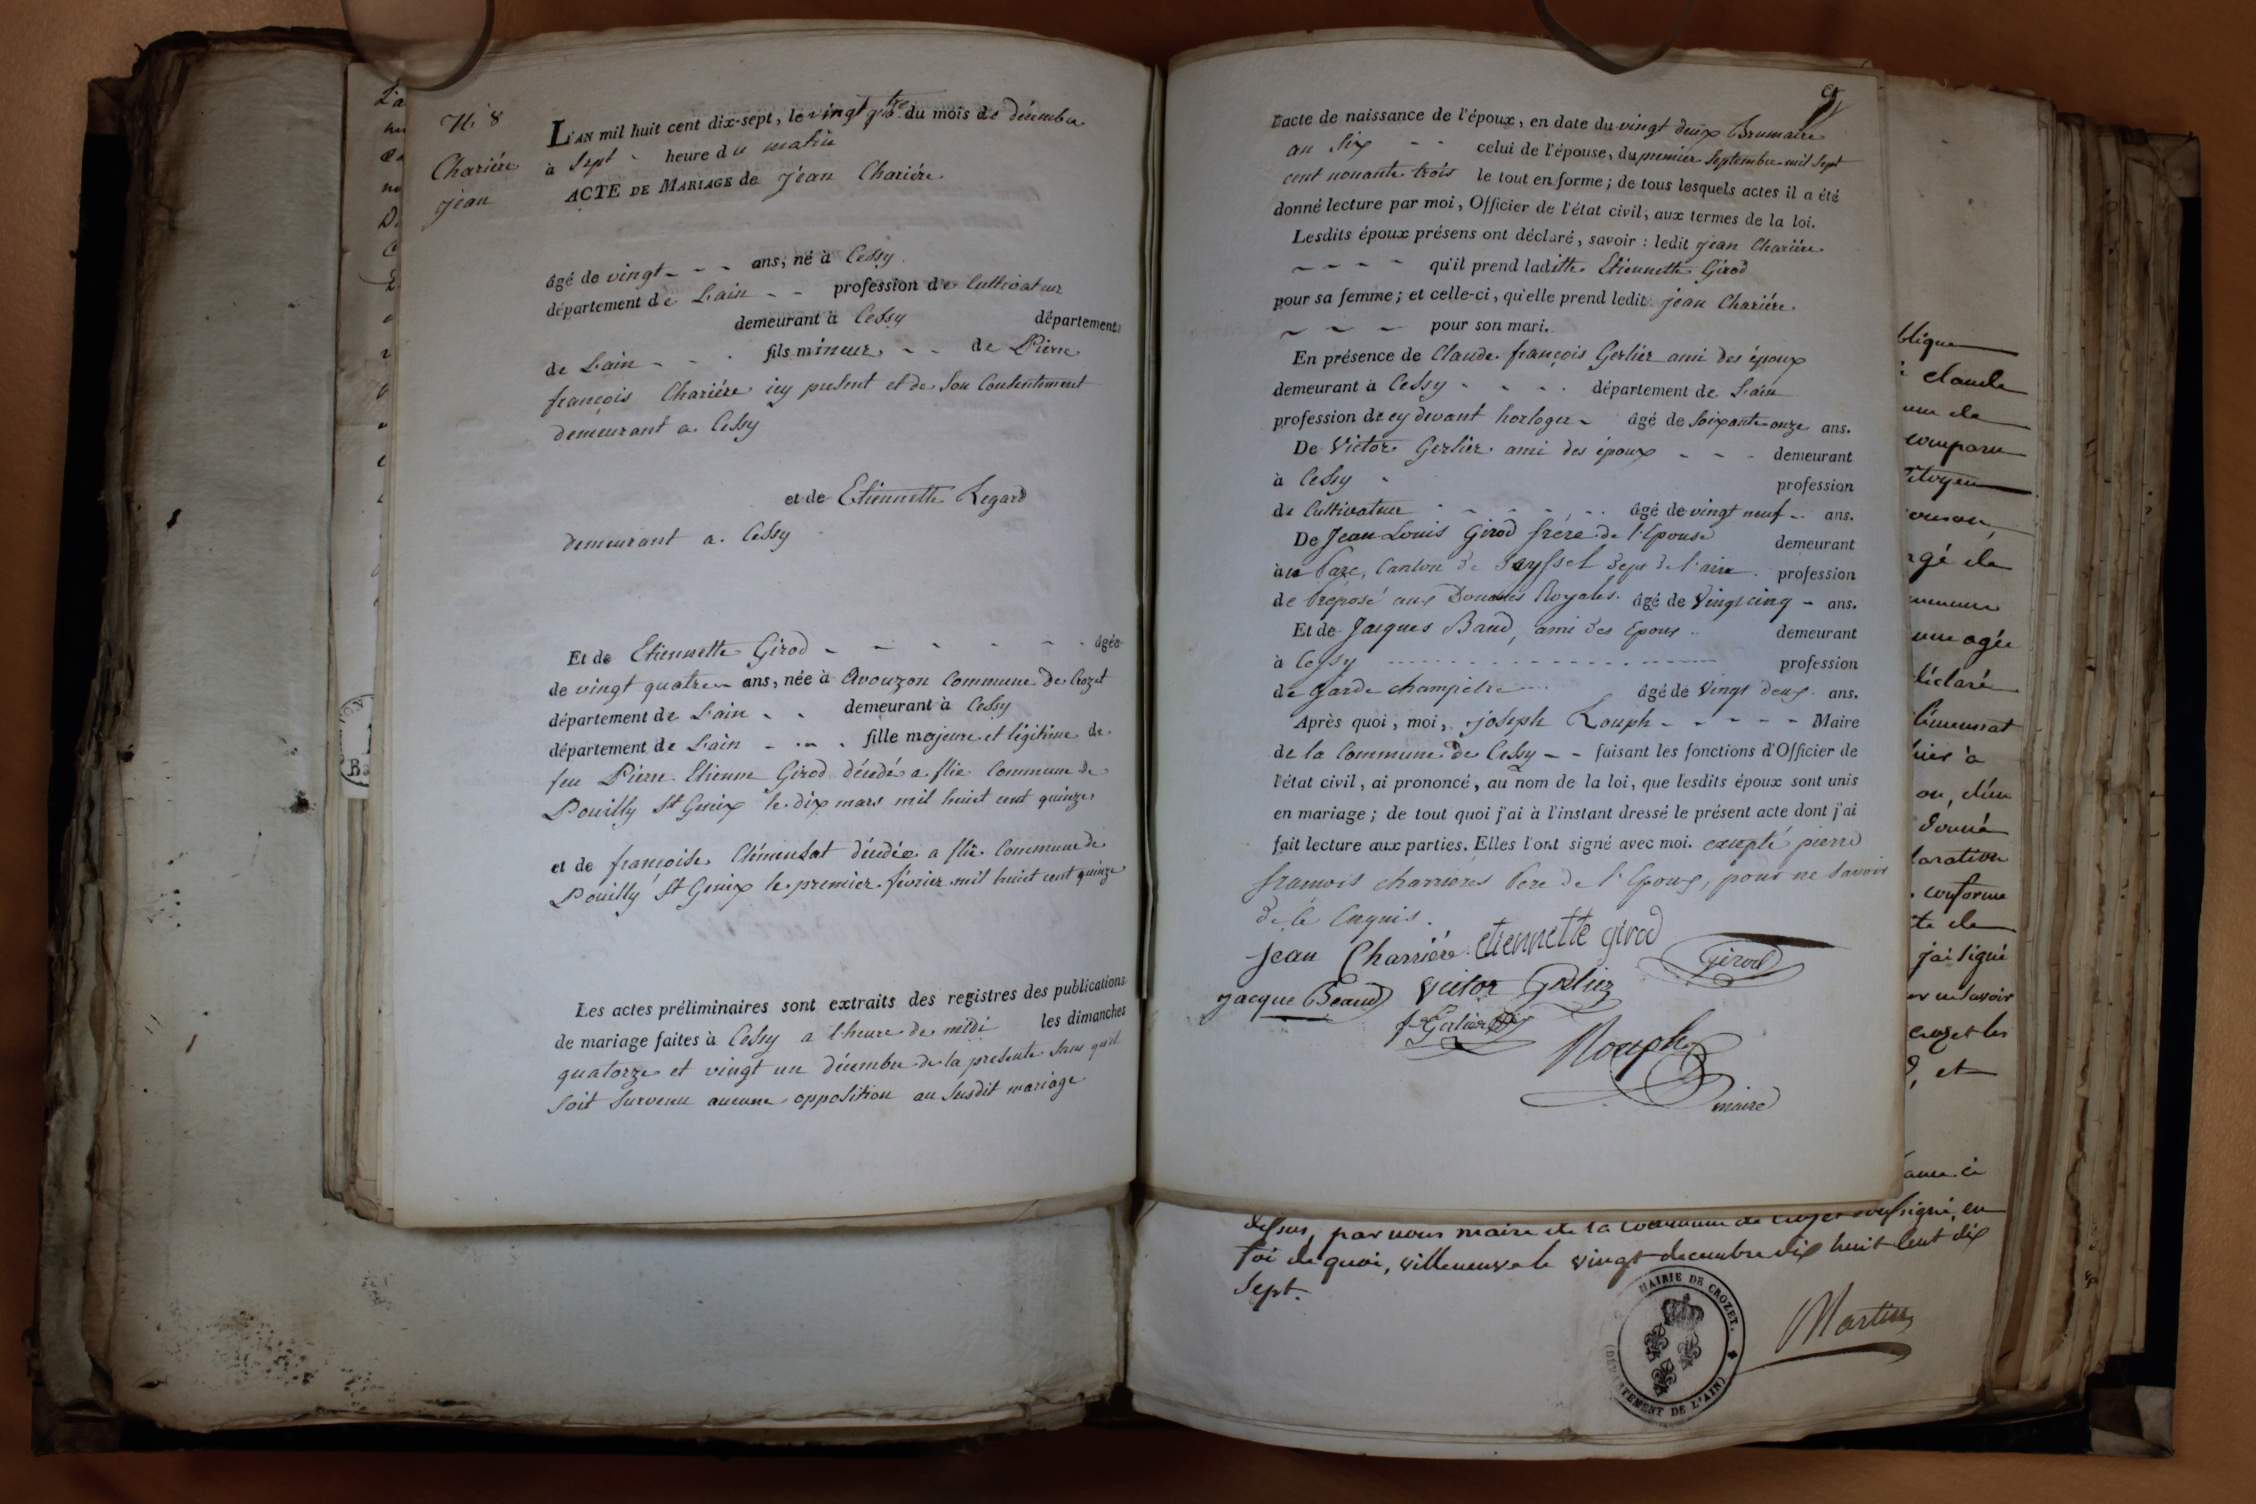 N.° 8
Chariére
jean
L'AN mil huit cent dix-sept, le vingt qtre du mois de décembre
à sept heure du matin
ACTE DE MARIAGE de jean Chariére
âgé de vingt - - - ans, né à Cessy
département de L'ain - - profession de Cultivateur
demeurant à Cessy département
de L'ain - - - fils mineur - - de Pierre
françois Chariére icy présent et de son Consentement
demeurant a Cessy
et de Etiennette Regard
demeurant a Cessy
Et de Etiennette Girod - - - - - - âgée
de vingt quatre - ans, née à Avouzon Commune de Crozet
département de L'ain - - demeurant à Cessy
département de L'ain - - - fille majeure et légitime de
feu Pierre Etienne Girod décédé a flie Commune de
Pouilly St Genix le dix mars mil huit cent quinze
et de françoise Clémensat décédée a flie Commune de
Pouilly St Genix le premier février mil huit cent quinze
Les actes préliminaires sont extraits des registres des publications
de mariage faites à Cessy a l'heure de midi les dimanches
quatorze et vingt un décembre de la presente sans qu'il
soit survenu aucune opposition au susdit mariage
L'acte de naissance de l'époux, en date du vingt deux Brumaire
an six - - celui de l'épouse, du premier septembre mil sept
cent nonante trois le tout en forme; de tous lesquels actes il a été
donné lecture par moi, Officier de l'état civil, aux termes de la loi.
Lesdits époux présens ont déclaré, savoir : ledit jean Chariére
- - - - qu'il prend laditte Etiennette Girod
pour sa femme; et celle-ci, qu'elle prend ledit jean Chariére
- - - pour son mari.
En présence de Claude françois Gerlier ami des époux
demeurant à Cessy - - - - département de L'ain
profession de cy devant horloger - âgé de soixante onze ans.
De Victor Gerlier ami des époux - - - demeurant
à Cessy - profession
de Cultivateur - - - - - - âgé de vingt neuf - ans.
De Jean Louis Girod frére de l'Epouse demeurant
au Parc, Canton de Seyssel dept de l'ain. profession
de Préposé aux Douanes Royales. âgé de Vingt cinq - ans.
Et de Jacques Baud, ami des Epoux demeurant
à Cessy profession
de Garde champêtre âgé de Vingt deux ans.
Après quoi, moi, joseph Rouph - - - - - Maire
de la Commune de Cessy - - faisant les fonctions d'Officier de
l'état civil, ai prononcé, au nom de la loi, que lesdits époux sont unis
en mariage; de tout quoi j'ai à l'instant dressé le présent acte dont j'ai
fait lecture aux parties. Elles l'ont signé avec moi. excepté pierre
françois charrières Pere de l'Epoux, pour ne savoir
de ce Enquis.
jean Charriére etiennette girod
Girod
jacque Beaud Victor Gerliez
f Gerlier
Rouph
maire
blique
claude
comparu
citoyen
agé de
une agée
déclaré
Clémensat
donné
conforme
j'ai signé
crozet les
, et
dessus, par nous maire de la Commune de Crozet soussigné, en
foi de quoi, villeneuve le vingt decembre dix huit cent dix
sept.
MAIRIE DE CROZET.
(DÉPARTEMENT DE L'AIN)
Martin